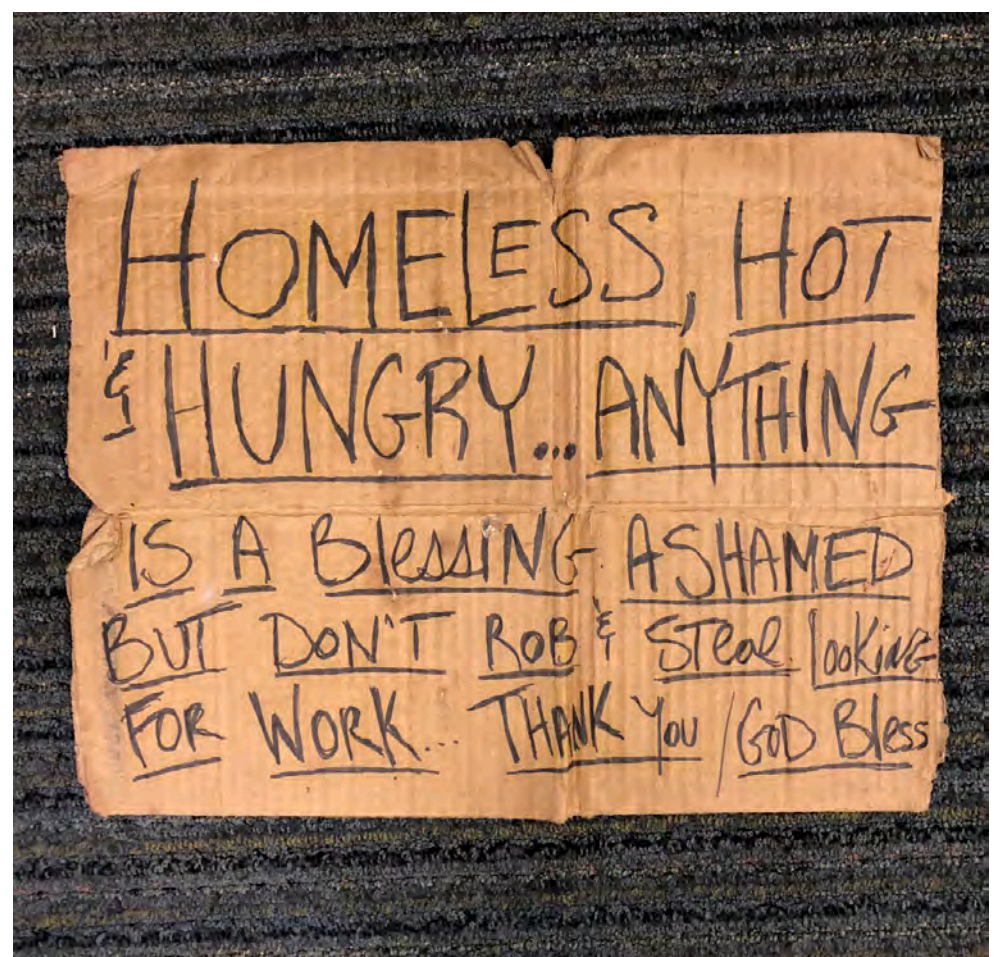 HOMELESS, HOT
& HUNGRY... ANYTHING
IS A BlessING ASHAMED
BUT DON'T ROB & STeal looKiNG
FOR WORK... THANK You / GOD Bless